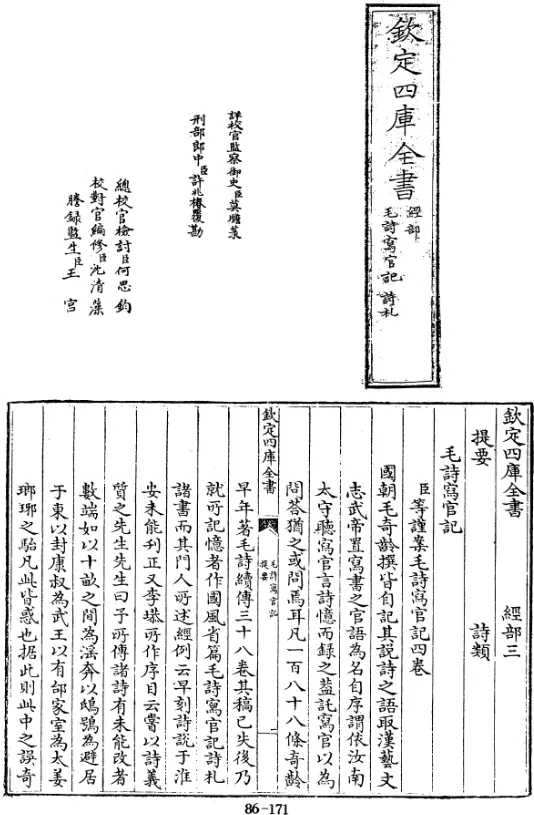 欽定四庫全書
經部
毛詩寫官記 詩札
詳校官監察御史臣莫瞻菉
刑部郎中臣許兆椿覆勘
總校官檢討臣何思鈞
校對官編修臣沈清藻
謄錄監生臣王宮
欽定四庫全書 經部三
提要 詩類
毛詩寫官記
臣等謹案毛詩寫官記四卷
國朝毛奇齡撰皆自記其說詩之語取漢藝文
志武帝置寫書之官語為名自序謂依汝南
太守聽寫官言詩憶而錄之蓋託寫官以為
問答猶之或問焉耳凡一百八十八條奇齡
欽定四庫全書
毛詩寫官記
提要
一
早年著毛詩續傳三十八卷其稿已失後乃
就所記憶者作國風省篇毛詩寫官記詩札
諸書而其門人所述經例云早刻詩說于淮
安未能刋正又李塨所作序目云嘗以詩義
質之先生先生曰予所傳諸詩有未能改者
數端如以十畝之間為淫奔以鴟鴞為避居
于東以封康叔為武王以有邰家室為太姜
瑯琊之駘凡此皆惑也据此則此中之誤奇
86-171